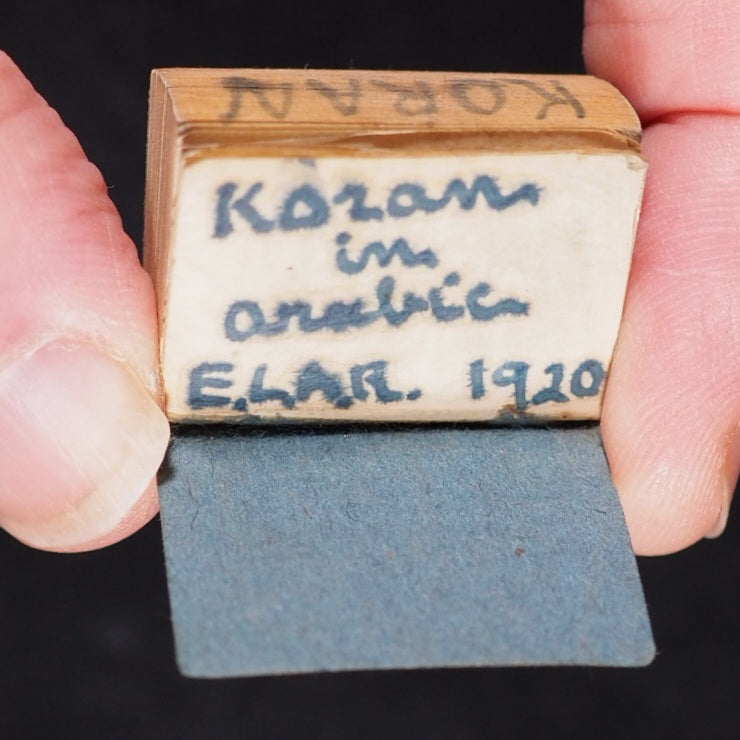 KORAN
Koran
in
arabic
E.L.A.R. 1920